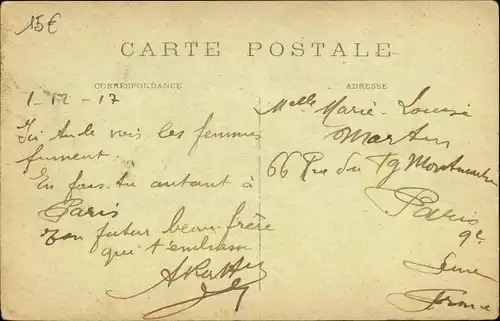 15€
CARTE POSTALE
CORRESPONDANCE
ADRESSE
1-12-17
Ici tu le vois les femmes
fument.
En fais-tu autant à
Paris
Ton futur beau-frère
qui t'embrasse
Melle Marie-Louise
Martin
66 Rue du Fg Montmartre
Paris
9e
Seine
France